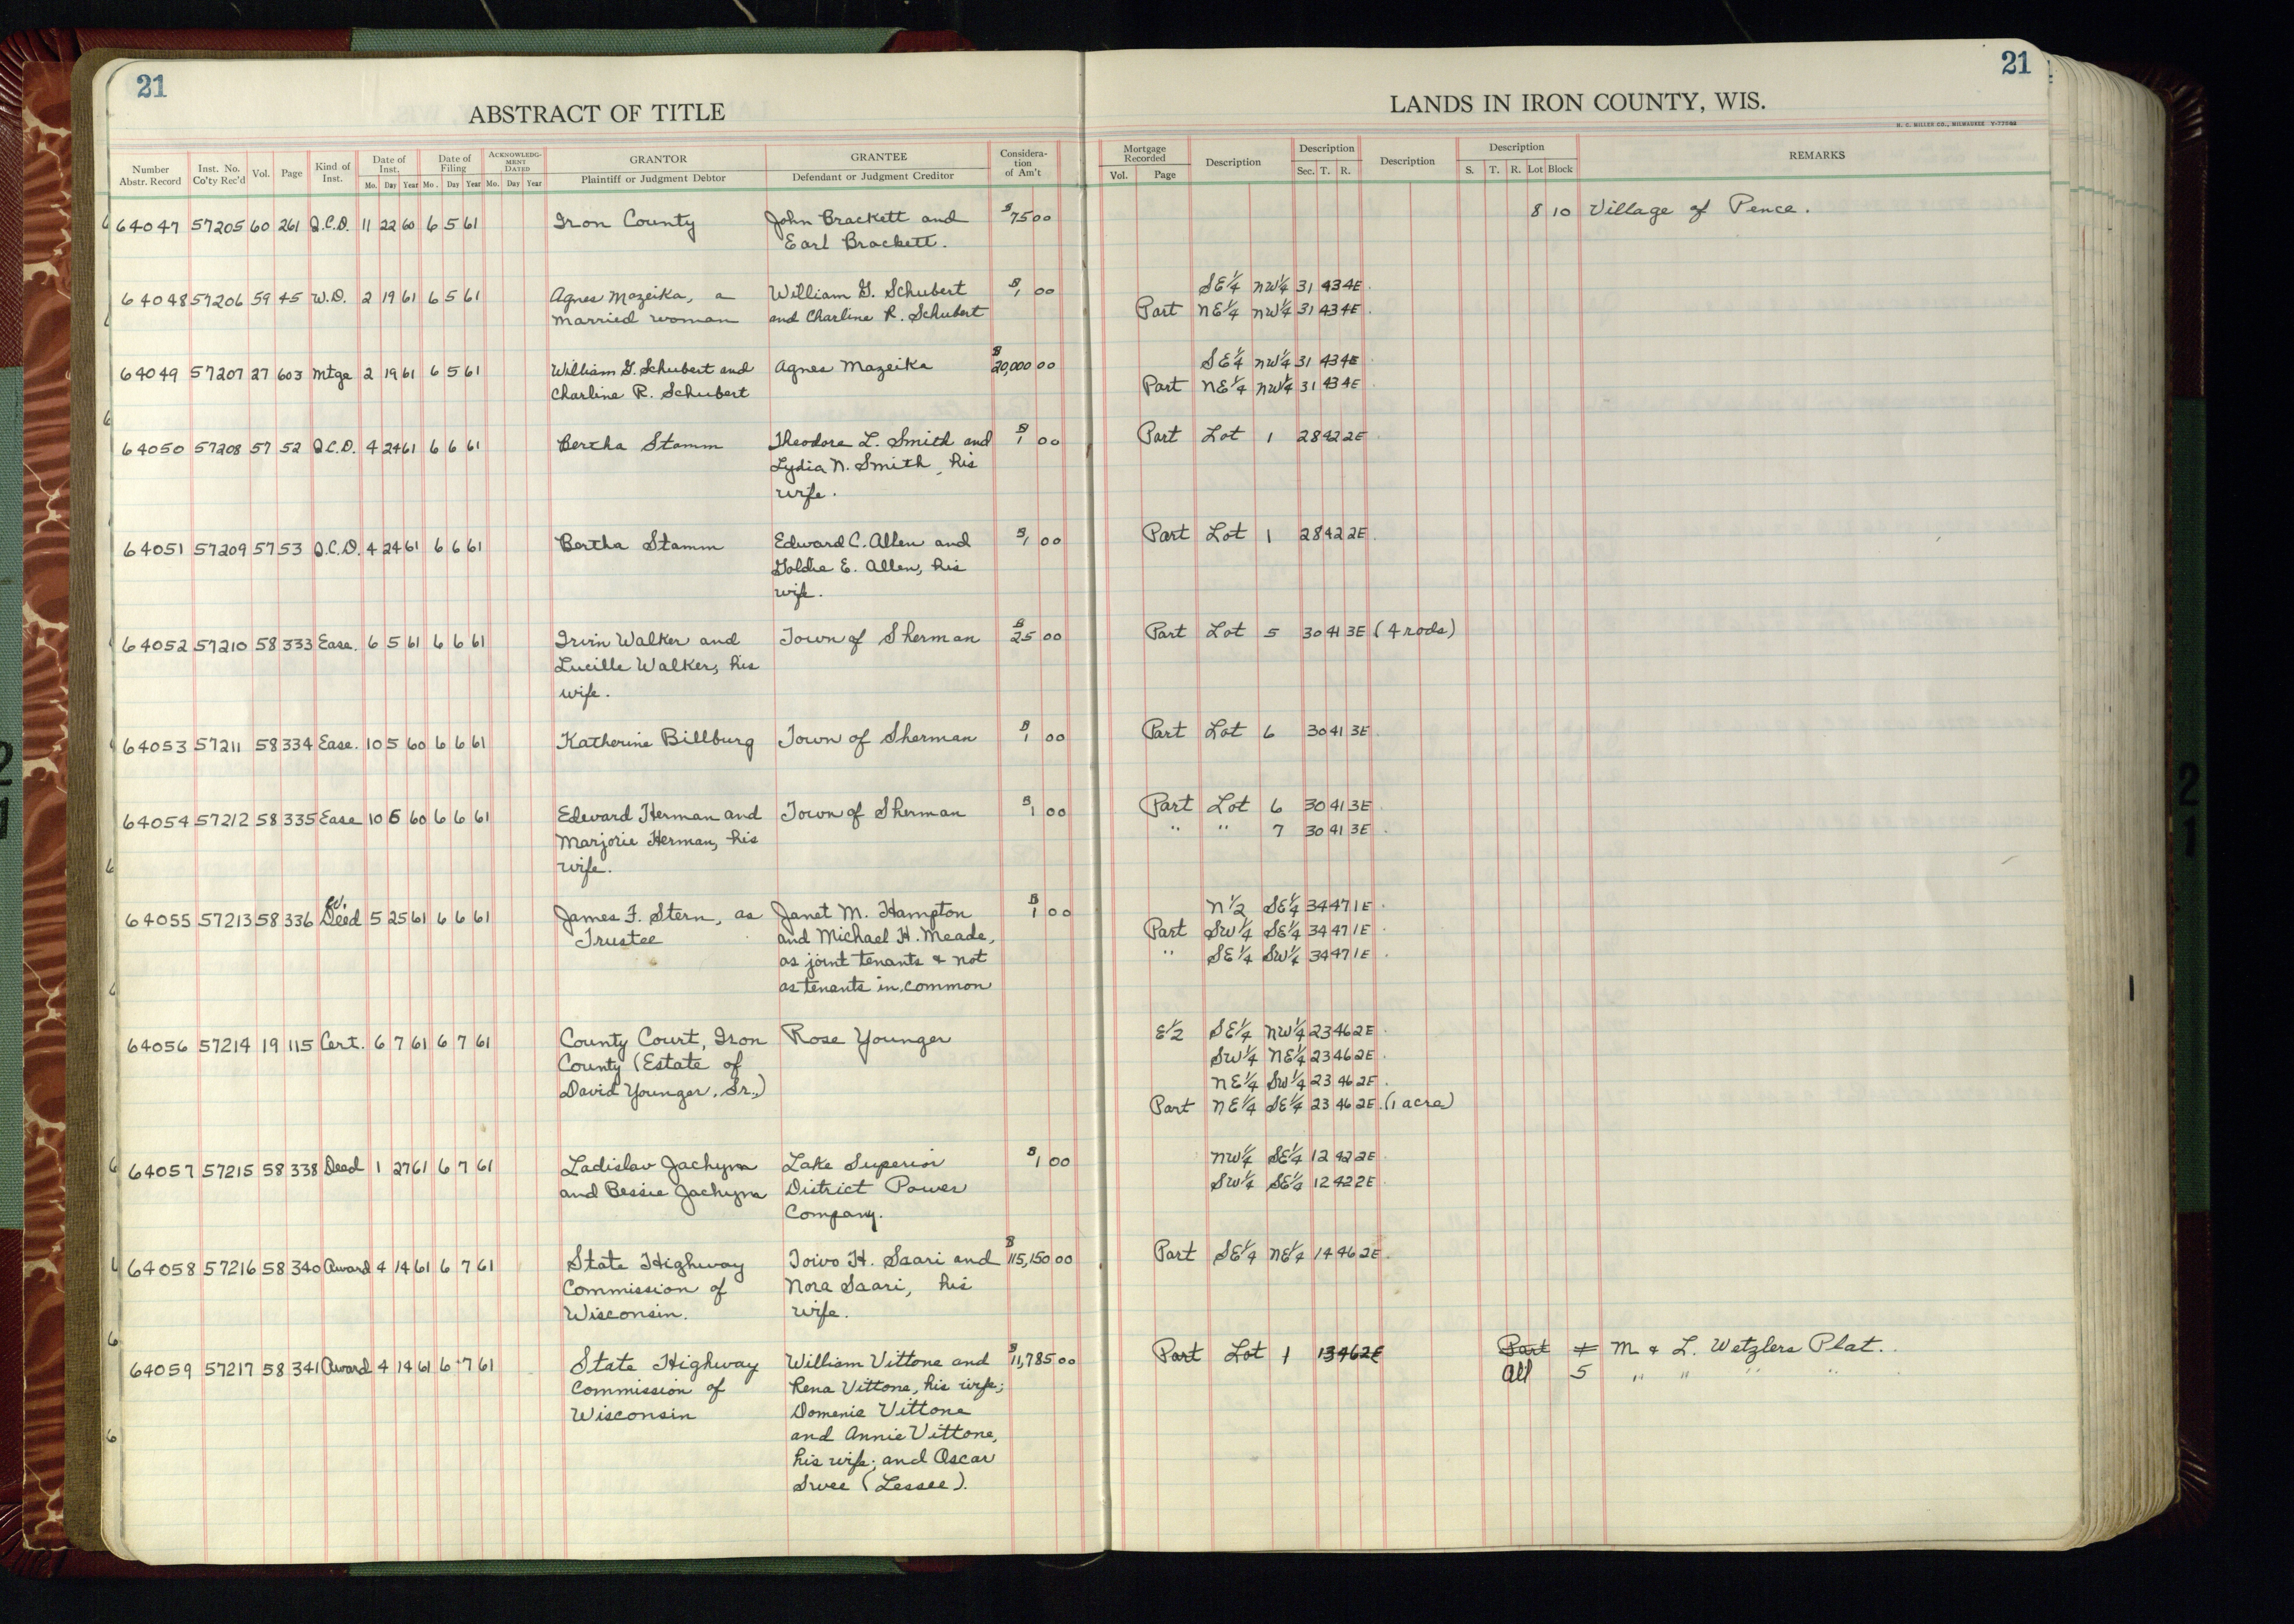 21
21
ABSTRACT OF TITLE
LANDS IN IRON COUNTY, WIS.
H. C. MILLER CO., MILWAUKEE
Number Abstr. Record Inst. No. Co'ty Rec'd Vol. Page Kind of Inst. Date of Inst. Mo. Day Year Date of Filing Mo. Day Year ACKNOWLEDGMENT DATED Mo. Day Year GRANTOR Plaintiff or Judgment Debtor GRANTEE Defendant or Judgment Creditor Consideration of Am't Mortgage Recorded Vol. Page Description Description Sec. T. R. Description Description S. T. R. Lot Block REMARKS
64047 57205 60 261 Q.C.D. 11 22 60 6 5 61 Iron County John Brackett and $75 00 8 10 Village of Pence.
Earl Brackett.
64048 57206 59 45 W.D. 2 19 61 6 5 61 Agnes Mazeika, a William G. Schubert $1 00 SE¼ NW¼ 31 43 4E
married woman and Charline R. Schubert Part NE¼ NW¼ 31 43 4E
64049 57207 27 603 Mtge 2 19 61 6 5 61 William G. Schubert and Agnes Mazeika $20,000 00 SE¼ NW¼ 31 43 4E
Charline R. Schubert Part NE¼ NW¼ 31 43 4E
64050 57208 57 52 Q.C.D. 4 24 61 6 6 61 Bertha Stamm Theodore L. Smith and $1 00 Part Lot 1 28 42 2E
Lydia N. Smith, his
wife.
64051 57209 57 53 Q.C.D. 4 24 61 6 6 61 Bertha Stamm Edward C. Allen and $1 00 Part Lot 1 28 42 2E
Goldie E. Allen, his
wife.
64052 57210 58 333 Ease. 6 5 61 6 6 61 Irvin Walker and Town of Sherman $25 00 Part Lot 5 30 41 3E (4 rods)
Lucille Walker, his
wife.
64053 57211 58 334 Ease. 10 5 60 6 6 61 Katherine Billburg Town of Sherman $1 00 Part Lot 6 30 41 3E
64054 57212 58 335 Ease 10 5 60 6 6 61 Edward Herman and Town of Sherman $1 00 Part Lot 6 30 41 3E
Marjorie Herman, his " " 7 30 41 3E
wife.
64055 57213 58 336 Deed 5 25 61 6 6 61 James F. Stern, as Janet M. Hampton $1 00 N½ SE¼ 34 47 1E
Trustee and Michael H. Meade, Part SW¼ SE¼ 34 47 1E
as joint tenants & not " SE¼ SW¼ 34 47 1E
as tenants in common
64056 57214 19 115 Cert. 6 7 61 6 7 61 County Court, Iron Rose Younger E½ SE¼ NW¼ 23 46 2E
County (Estate of SW¼ NE¼ 23 46 2E
David Younger, Sr.,) NE¼ SW¼ 23 46 2E
Part NE¼ SE¼ 23 46 2E (1 acre)
64057 57215 58 338 Deed 1 27 61 6 7 61 Ladislav Jachyra Lake Superior $1 00 NW¼ SE¼ 12 42 2E
and Bessie Jachyra District Power SW¼ SE¼ 12 42 2E
Company.
64058 57216 58 340 Award 4 14 61 6 7 61 State Highway Toivo H. Saari and $115,150 00 Part SE¼ NE¼ 14 46 2E
Commission of Nora Saari, his
Wisconsin. wife.
64059 57217 58 341 Award 4 14 61 6 7 61 State Highway William Vittone and $11,785 00 Part Lot 1 13 46 2E Part M & L. Wetzlers Plat.
Commission of Rena Vittone, his wife; All 5 " " " "
Wisconsin Domenic Vittone
and Annie Vittone,
his wife; and Oscar
(Lessee).